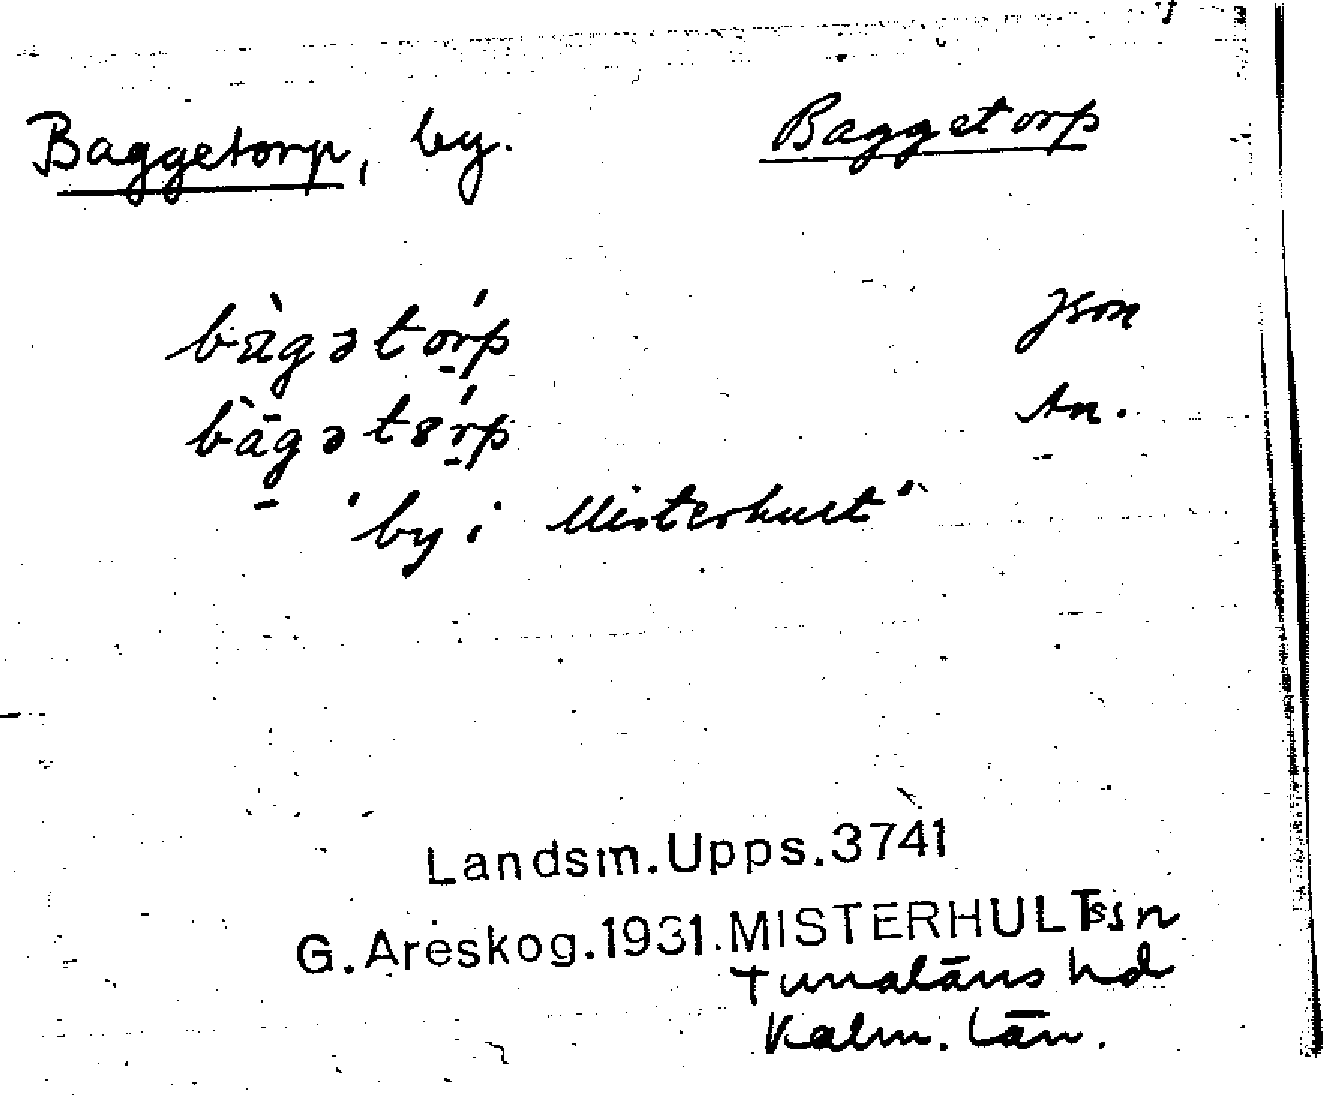 Baggetorp, by. Baggetorp
bàgətórp Json
bàgətórp An.
"by i Misterhult"
Landsm.Upps.3741
G.Areskog.1931.MISTERHULTs sn
Tunaläns hd
Kalm. län.